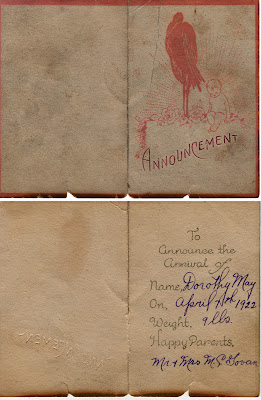 ANNOUNCEMENT
To
Announce the
Arrival of
Name, Dorothy May
On, April 1922
Weight, 9 lbs.
Happy Parents,
Mr & Mrs M.